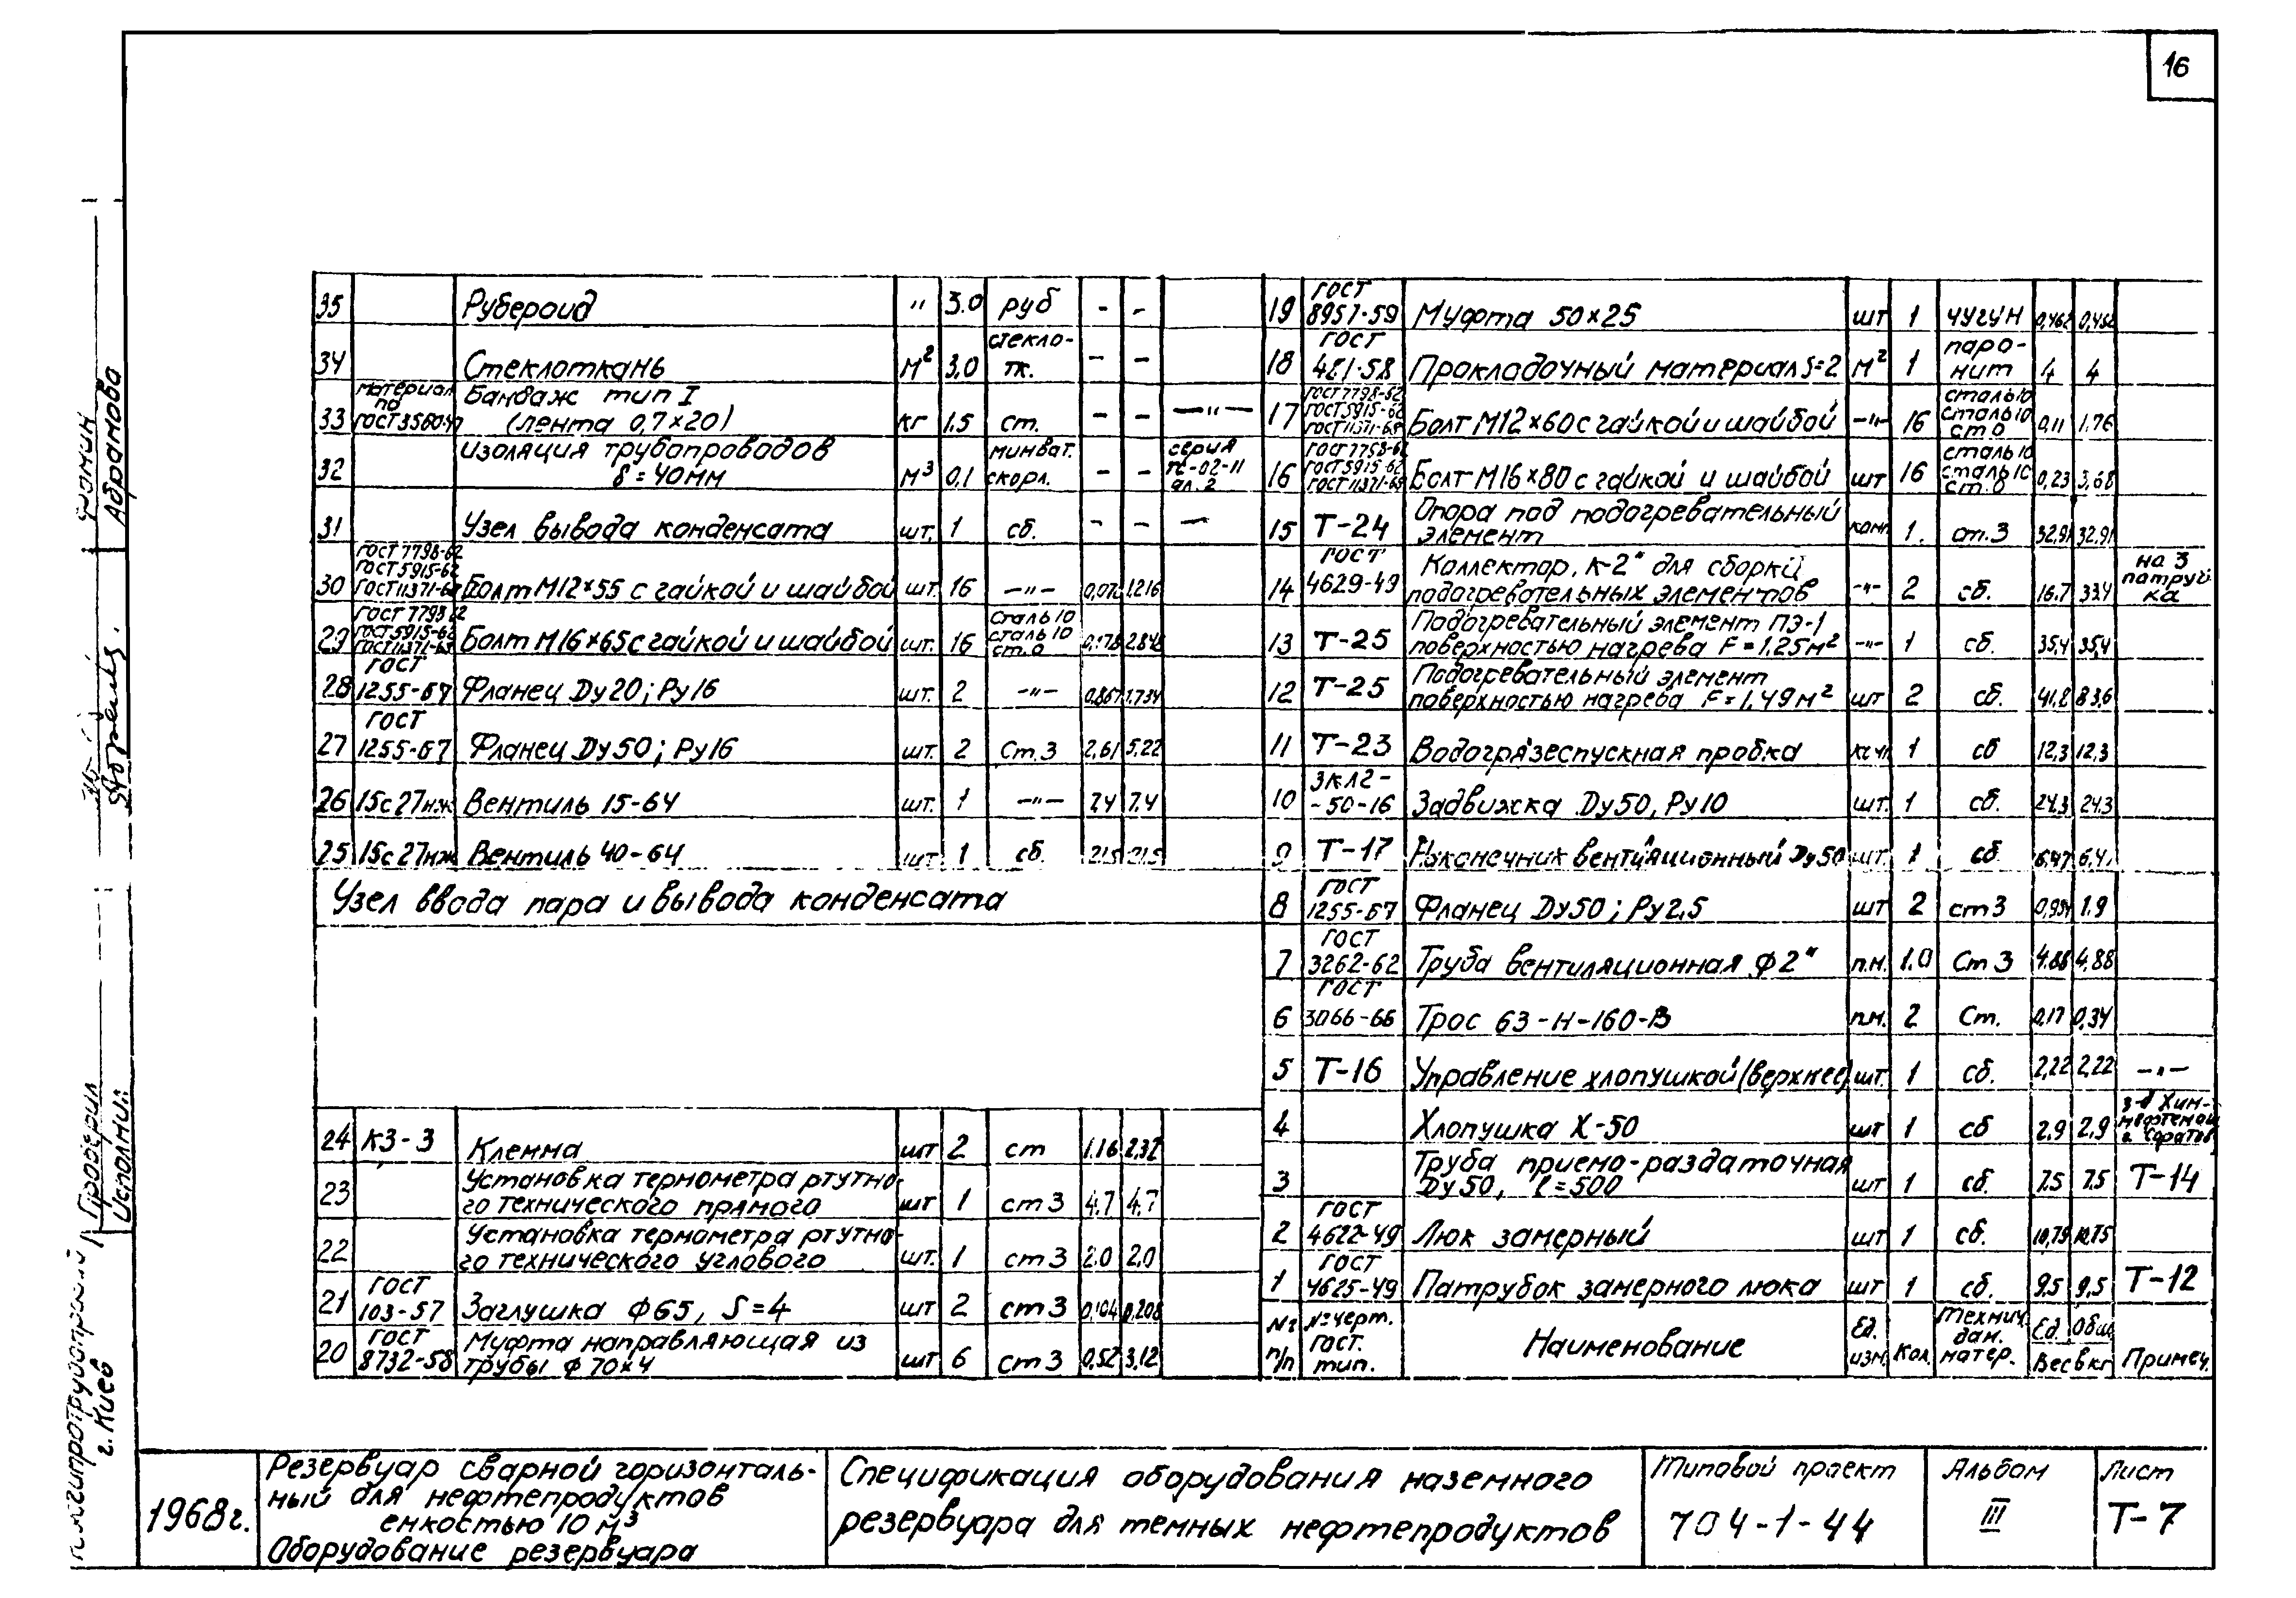 16
35 Рубероид " 3.0 руб - -
34 Стеклоткань м² 3,0 стекло-тк. - -
33 материал по ГОСТ 3560-47 Бандаж тип I (лента 0,7×20) кг 1.5 ст. - - —"—
32 Изоляция трубопроводов δ = 40мм м³ 0,1 минват. скорл. - - серия ТС-02-11 ал. 2
31 Узел вывода конденсата шт. 1 сб. - - —
30 ГОСТ 7798-62 ГОСТ 5915-62 ГОСТ 11371-68 Болт М12×55 с гайкой и шайбой шт. 16 —"— 0,076 1,216
29 ГОСТ 7798-62 ГОСТ 5915-62 ГОСТ 11371-68 Болт М16×65 с гайкой и шайбой шт. 16 сталь 10 сталь 10 ст.0 0,178 2,848
28 ГОСТ 1255-67 Фланец Dу20; Ру16 шт. 2 —"— 0,867 1,734
27 ГОСТ 1255-67 Фланец Dу50; Ру16 шт. 2 Ст.3 2,61 5,22
26 15с27нж Вентиль 15-64 шт. 1 —"— 7,4 7,4
25 15с27нж Вентиль 40-64 шт. 1 сб. 21,5 21,5
Узел ввода пара и вывода конденсата
24 КЗ-3 Клемма шт 2 ст 1.16 2,32
23 Установка термометра ртутно-
го технического прямого шт 1 ст 3 4.7 4.7
22 Установка термометра ртутно-
го технического углового шт. 1 ст 3 2.0 2,0
21 ГОСТ 103-57 Заглушка ф65, S=4 шт 2 ст 3 0,104 0,208
20 ГОСТ 8732-58 Муфта направляющая из
трубы ф 70×4 шт 6 ст 3 0,52 3,12
19 ГОСТ 8957-59 Муфта 50×25 шт 1 чугун 0,462 0,462
18 ГОСТ 481-58 Прокладочный материал S=2 м² 1 паро-нит 4 4
17 ГОСТ 7798-62 ГОСТ 5915-62 ГОСТ 11371-68 Болт М12×60 с гайкой и шайбой —"— 16 сталь 10 сталь 10 ст 0 0,11 1,76
16 ГОСТ 7798-62 ГОСТ 5915-62 ГОСТ 11371-68 Болт М16×80 с гайкой и шайбой шт 16 сталь 10 сталь 10 ст.0 0,23 3,68
15 Т-24 Опора под подогревательный
элемент комп 1. ст.3 32,91 32,91
14 ГОСТ 4629-49 Коллектор. К-2" для сборки
подогревательных элементов -"- 2 сб. 16.7 33.4 на 3 патруб-ка
13 Т-25 Подогревательный элемент ПЭ-1
поверхностью нагрева F=1.25м² -"- 1 сб. 35,4 35,4
12 Т-25 Подогревательный элемент
поверхностью нагрева F=1,49м² шт 2 сб. 41,8 83,6
11 Т-23 Водогрязеспускная пробка 1 сб 12,3 12,3
10 ЗКЛ2-
-50-16 Задвижка Dу50, Ру10 шт. 1 сб. 24.3 24.3
9 Т-17 Наконечник вентиляционный Dу50 шт. 1 сб 6,47 6,47
8 ГОСТ 1255-67 Фланец Dу50; Ру2,5 шт 2 ст3 1.9
7 ГОСТ 3262-62 Труба вентиляционная ф2" п.м. 1.0 Ст 3 4.88 4,88
6 ГОСТ 3066-66 Трос 63-Н-160-В п.м. 2 Ст. 0,17 0,34
5 Т-16 Управление хлопушкой (верхнее) шт. 1 сб. 2,22 2,22 —"—
4 Хлопушка Х-50 шт 1 сб 2,9 2,9 з-д Хим-нефтемаш г. Саратов
3 Труба приемо-раздаточная
Dу50, ℓ=500 шт 1 сб. 7,5 7,5 Т-14
2 ГОСТ 4622-49 Люк замерный шт 1 сб. 10,75 10,75
1 ГОСТ 4625-49 Патрубок замерного люка шт 1 сб. 9,5 9,5 Т-12
№№ п/п № черт. ГОСТ. тип. Наименование Ед. изм. Кол. Технич. дан. матер. Ед. Общ Вес в кг Примеч.
Фомин
Абрамова
Проверил
Исполнил
Южгипротрубопровод
г. Киев
1968г.
Резервуар сварной горизонталь-
ный для нефтепродуктов
емкостью 10 м³
Оборудование резервуара
Спецификация оборудования наземного
резервуара для темных нефтепродуктов
Типовой проект
704-1-44
Альбом
III
Лист
Т-7